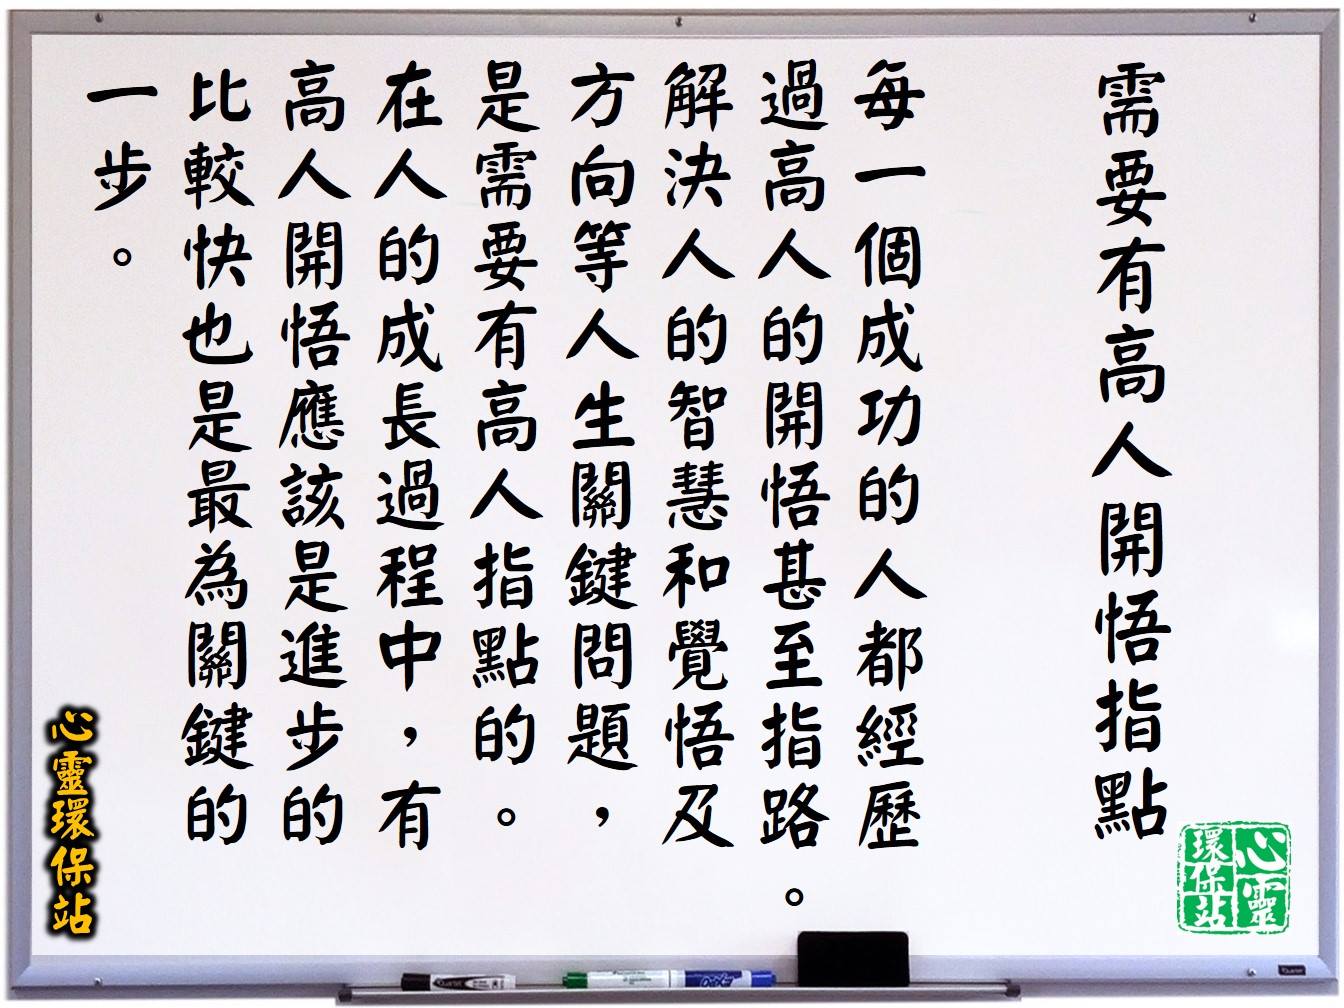 需要有高人開悟指點
每一個成功的人都經歷
過高人的開悟甚至指路。
解決人的智慧和覺悟及
方向等人生關鍵問題，
是需要有高人指點的。
在人的成長過程中，有
高人開悟應該是進步的
比較快也是最為關鍵的
一步。
心靈環保站
心靈
環保站
Quartet